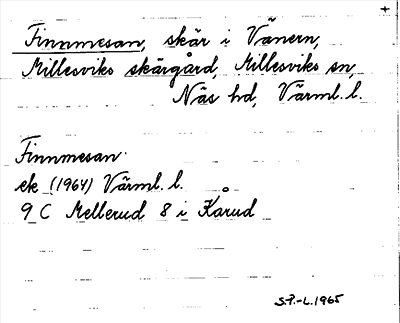 Finnmesan, skär i Vänern,
Millesviks skärgård, Millesviks sn,
Näs hd, Värml. l.
Finnmesan.
ek (1964) Värml. l.
9 C Mellerud 8 i Karud
S.P.-L. 1965